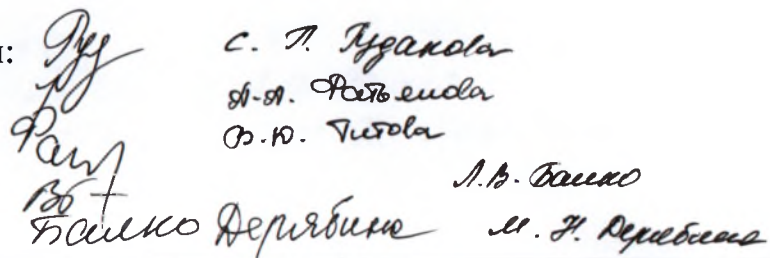 и:
С. П. Гудакова
А.А. Фатьянова
В.Ю. Титова
Л.В. Балко
Балко Дерябина М. Н. Дерябина